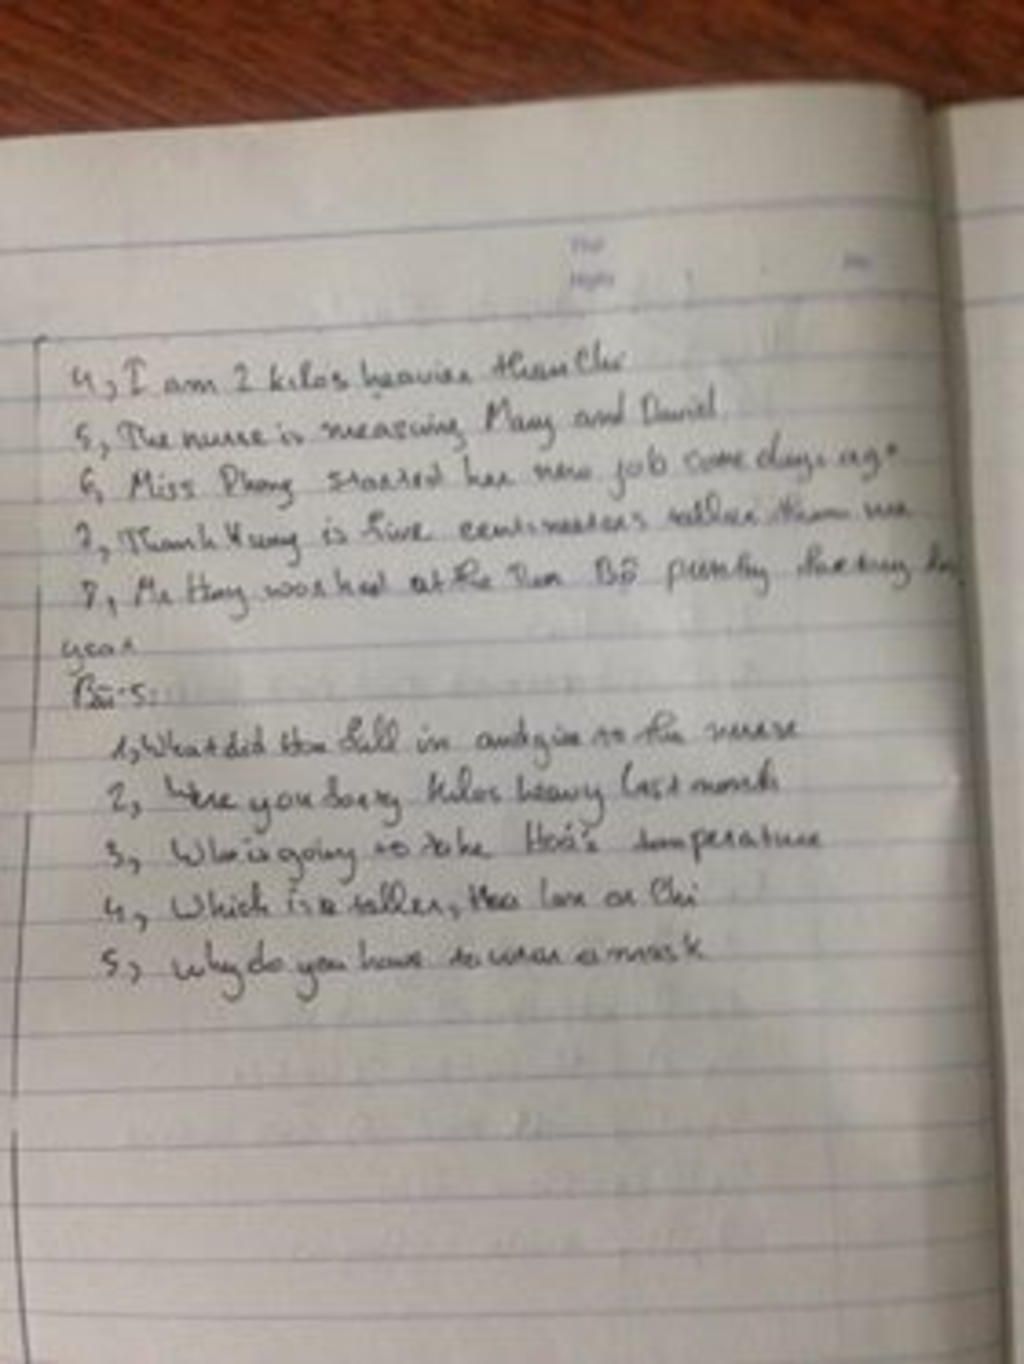 4, I am 2 kilos heavier than Chi
5, The nurse is measuring Mary and Daniel
6, Miss Phong started her new job some days ago
7, Thanh Hung is five centimeters taller than me
8, Mr Hay worked at the Tam Bố factory
year
Bài 5:
1, What did Hoa fill in and give to the nurse
2, Were you forty kilos heavy last month
3, Who is going to take Hoa's temperature
4, Which is taller, Hoa Lan or Chi
5, Why do you have to wear a mask